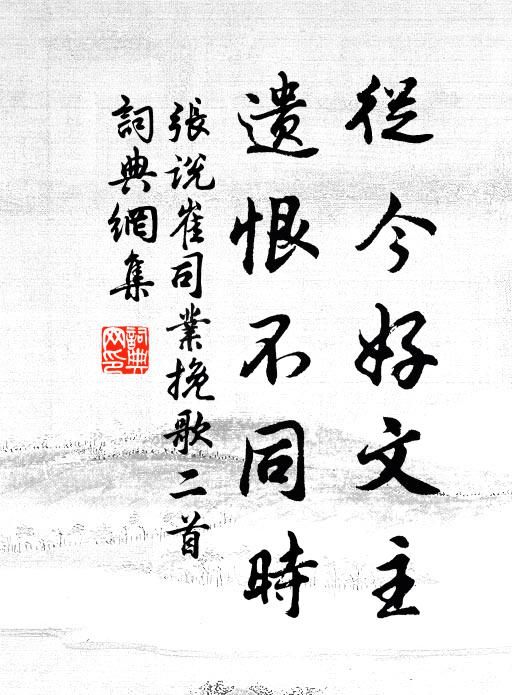 從今好文主
遺恨不同時
張説崔司業挽歌二首
詞典網集
詞典網印